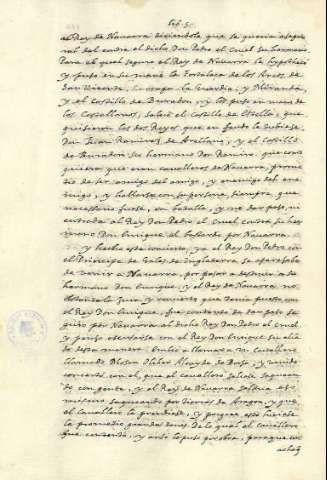 al Rey de Navarra diciendole que se queria asegu
rar del contra el dicho Don Pedro el Cruel su hermano
Para el qual seguro el Rey de Navarra
y puso en su mano la fortaleza de los Arcos, de
San Vicente, la Guardia, y Miranda,
y el Castillo de Buradon, y los puso en mano de
los Castellanos, salvo el Castillo de Estella, que
quisieron los dos Reyes que en feudo le tubiese
Don Juan Ramirez de Arellano, y el Castillo
de Buradon su hermano Don Ramiro que
eran cavalleros de Navarra, prome
tio de ser amigo del amigo, y enemigo del ene
migo, y hallarse con su persona, siempre que
necesario fuese, en batalla, y no dar paso, ni
entrada al Rey Don Pedro el Cruel contra su her
mano Don Enrique el bastardo por Navarra.
y hecho este convenio, ya el Rey Don Pedro con
el Principe de Gales de Inglaterra se aparejaba
de venir a Navarra, por pasar a destruir a su
hermano Don Enrique, y el Rey de Navarra no
obstante la Jura, y convenio que tenia puesto con
el Rey Don Enrique, fue contento de dar paso se
guro por Navarra al dicho Rey Don Pedro el Cruel
y para escusarse con el Rey Don Enrique su alia
do desta manera: Embio a llamar a un Cavallero
llamado Mosen
concerto con el que el cavallero saliese
con gente, y el Rey de Navarra saliese
por tierras de Aragon, y que
el cavallero lo prendiese, y porque esto hiciese
le prometio grandes dones de lo qual el cavallero
fue contento, y asi lo puso por obra, para que